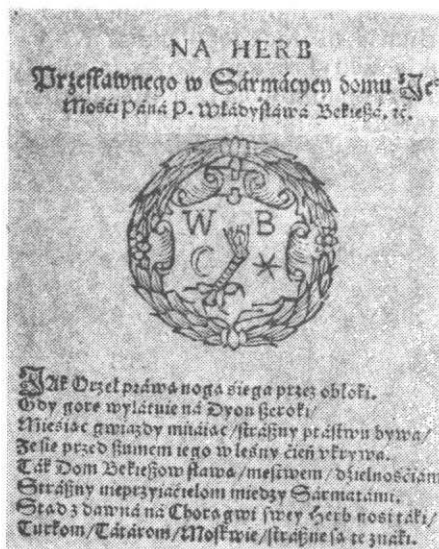 NA HERB
Przesławnego w Sármácyey domu Je°
Mośći Páná P. Władysławá Bekieszá. ꝛć.
W B
JAk Orzeł práwa noga siega przez obłoki.
Gdy gore wylátuie ná Dyon szeroki/
Miesiac gwiazdy miiáiac/ strászny ptástwu bywa/
Że sie przed szumem iego w leśny ćień vkrywa.
Ták Dom Bekieszow sława/ mestwem/ dźielnośćiám
Strászny nieprzyiaćielom miedzy Sármatámi.
Stad z dawná ná Chorągwi swey Herb nosi táki/
Turkom/ Tátárom/ Moskwie/ strászne sa te znáki.